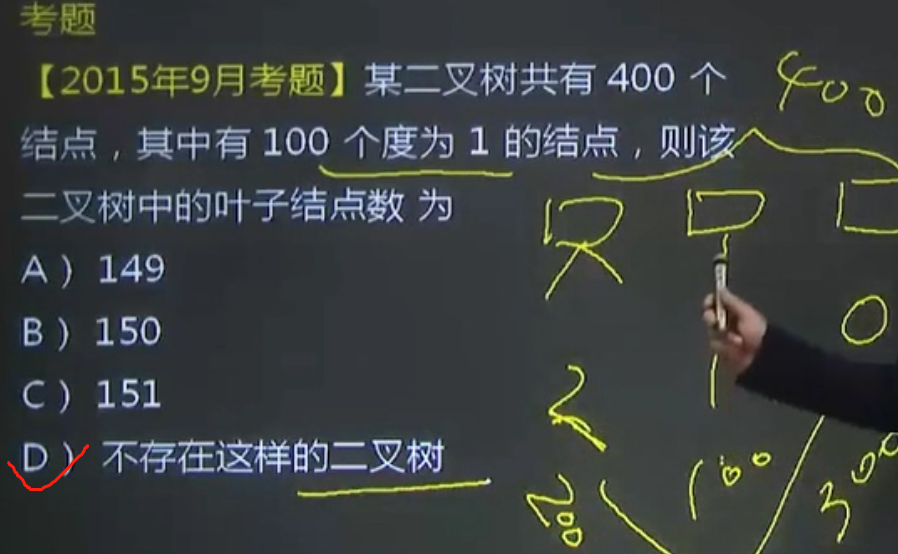 考题
【2015年9月考题】某二叉树共有 400 个
结点，其中有 100 个度为 1 的结点，则该
二叉树中的叶子结点数 为
A） 149
B） 150
C） 151
D） 不存在这样的二叉树
400
0
2
1
100
300